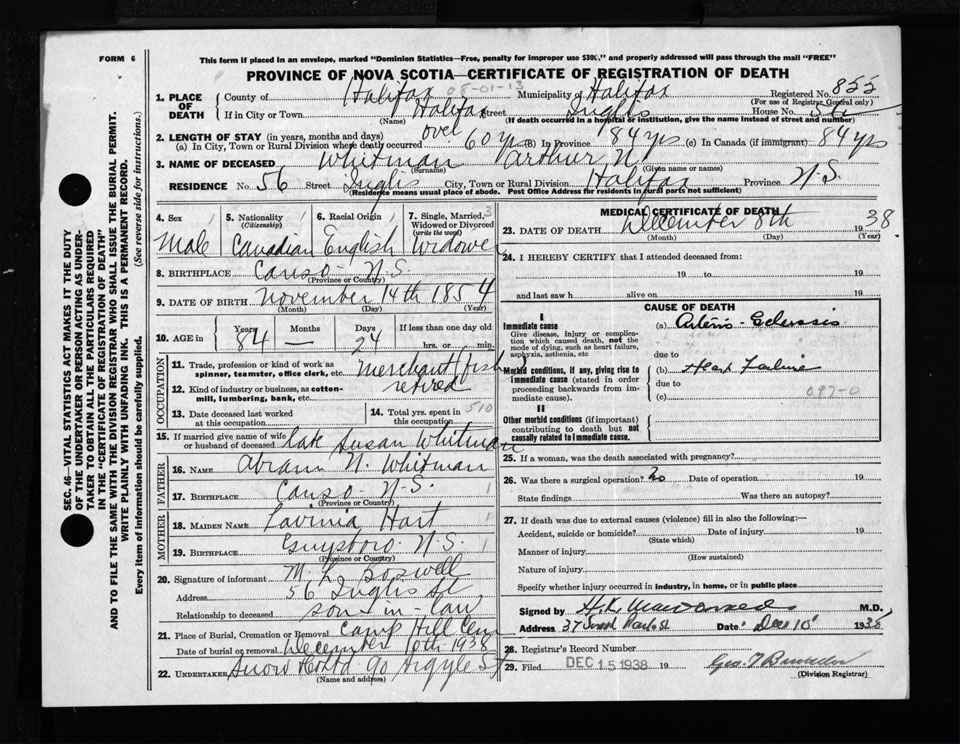 FORM 6
This form if placed in an envelope, marked "Dominion Statistics—Free, penalty for improper use $300," and properly addressed will pass through the mail "FREE"
PROVINCE OF NOVA SCOTIA—CERTIFICATE OF REGISTRATION OF DEATH
SEC. 46—VITAL STATISTICS ACT MAKES IT THE DUTY
OF THE UNDERTAKER OR PERSON ACTING AS UNDER-
TAKER TO OBTAIN ALL THE PARTICULARS REQUIRED
IN THE "CERTIFICATE OF REGISTRATION OF DEATH"
AND TO FILE THE SAME WITH THE DIVISION REGISTRAR WHO SHALL ISSUE THE BURIAL PERMIT.
WRITE PLAINLY WITH UNFADING INK. THIS IS A PERMANENT RECORD.
Every item of information should be carefully supplied. (See reverse side for instructions.)
1. PLACE OF DEATH
County of Halifax 05-01-13 Municipality of Halifax Registered No. 855
(For use of Registrar General only)
If in City or Town Halifax Street Inglis House No. 56
(Name) (If death occurred in a hospital or institution, give the name instead of street and number)
2. LENGTH OF STAY (in years, months and days)
(a) In City, Town or Rural Division where death occurred over 60 yrs (B) In Province 84 yrs (c) In Canada (if immigrant) 84 yrs
3. NAME OF DECEASED Whitman Arthur N.
(Surname) (Given name or names)
RESIDENCE No. 56 Street Inglis City, Town or Rural Division Halifax Province N.S.
(Residence means usual place of abode. Post Office Address for residents in rural parts not sufficient)
4. Sex Male
5. Nationality (Citizenship) Canadian
6. Racial Origin English
7. Single, Married, Widowed or Divorced (write the word) Widower
8. BIRTHPLACE Canso N.S.
(Province or Country)
9. DATE OF BIRTH November 14th 1854
(Month) (Day) (Year)
10. AGE in Years 84 Months — Days 24 If less than one day old
hrs. or min.
OCCUPATION
11. Trade, profession or kind of work as
spinner, teamster, office clerk, etc. Merchant (fish)
12. Kind of industry or business, as cotton-
mill, lumbering, bank, etc. retired
13. Date deceased last worked
at this occupation
14. Total yrs. spent in
this occupation 510
15. If married give name of wife
or husband of deceased late Susan Whitman
FATHER
16. NAME Abram N. Whitman
17. BIRTHPLACE Canso N.S.
(Province or Country)
MOTHER
18. MAIDEN NAME Lavinia Hart
19. BIRTHPLACE Guysboro N.S.
(Province or Country)
20. Signature of informant M. L. Boswell
Address 56 Inglis St
Relationship to deceased son-in-law
21. Place of Burial, Cremation or Removal Camp Hill Cem
Date of burial or removal December 10th 1938
22. UNDERTAKER Snow & Co Ltd 90 Argyle St
(Name and address)
MEDICAL CERTIFICATE OF DEATH
23. DATE OF DEATH December 8th 1938
(Month) (Day) (Year)
24. I HEREBY CERTIFY that I attended deceased from:
19 to 19
and last saw h alive on 19
CAUSE OF DEATH
I
Immediate cause
Give disease, injury or complica-
tion which caused death, not the
mode of dying, such as heart failure,
asphyxia, asthenia, etc
(a) Arterio Sclerosis
due to
Morbid conditions, if any, giving rise to
immediate cause (stated in order
proceeding backwards from im-
mediate cause).
(b) Heart Failure
due to
(c) 097-0
II
Other morbid conditions (if important)
contributing to death but not
causally related to immediate cause.
25. If a woman, was the death associated with pregnancy?
26. Was there a surgical operation? no Date of operation 19
State findings Was there an autopsy?
27. If death was due to external causes (violence) fill in also the following:—
Accident, suicide or homicide? Date of injury 19
(State which)
Manner of injury
(How sustained)
Nature of injury
Specify whether injury occurred in industry, in home, or in public place
Signed by H.K. M.D.
Address 37 South Park St Date Dec 10 1938
28. Registrar's Record Number
29. Filed DEC 15 1938 19 Geo. T.
(Division Registrar)